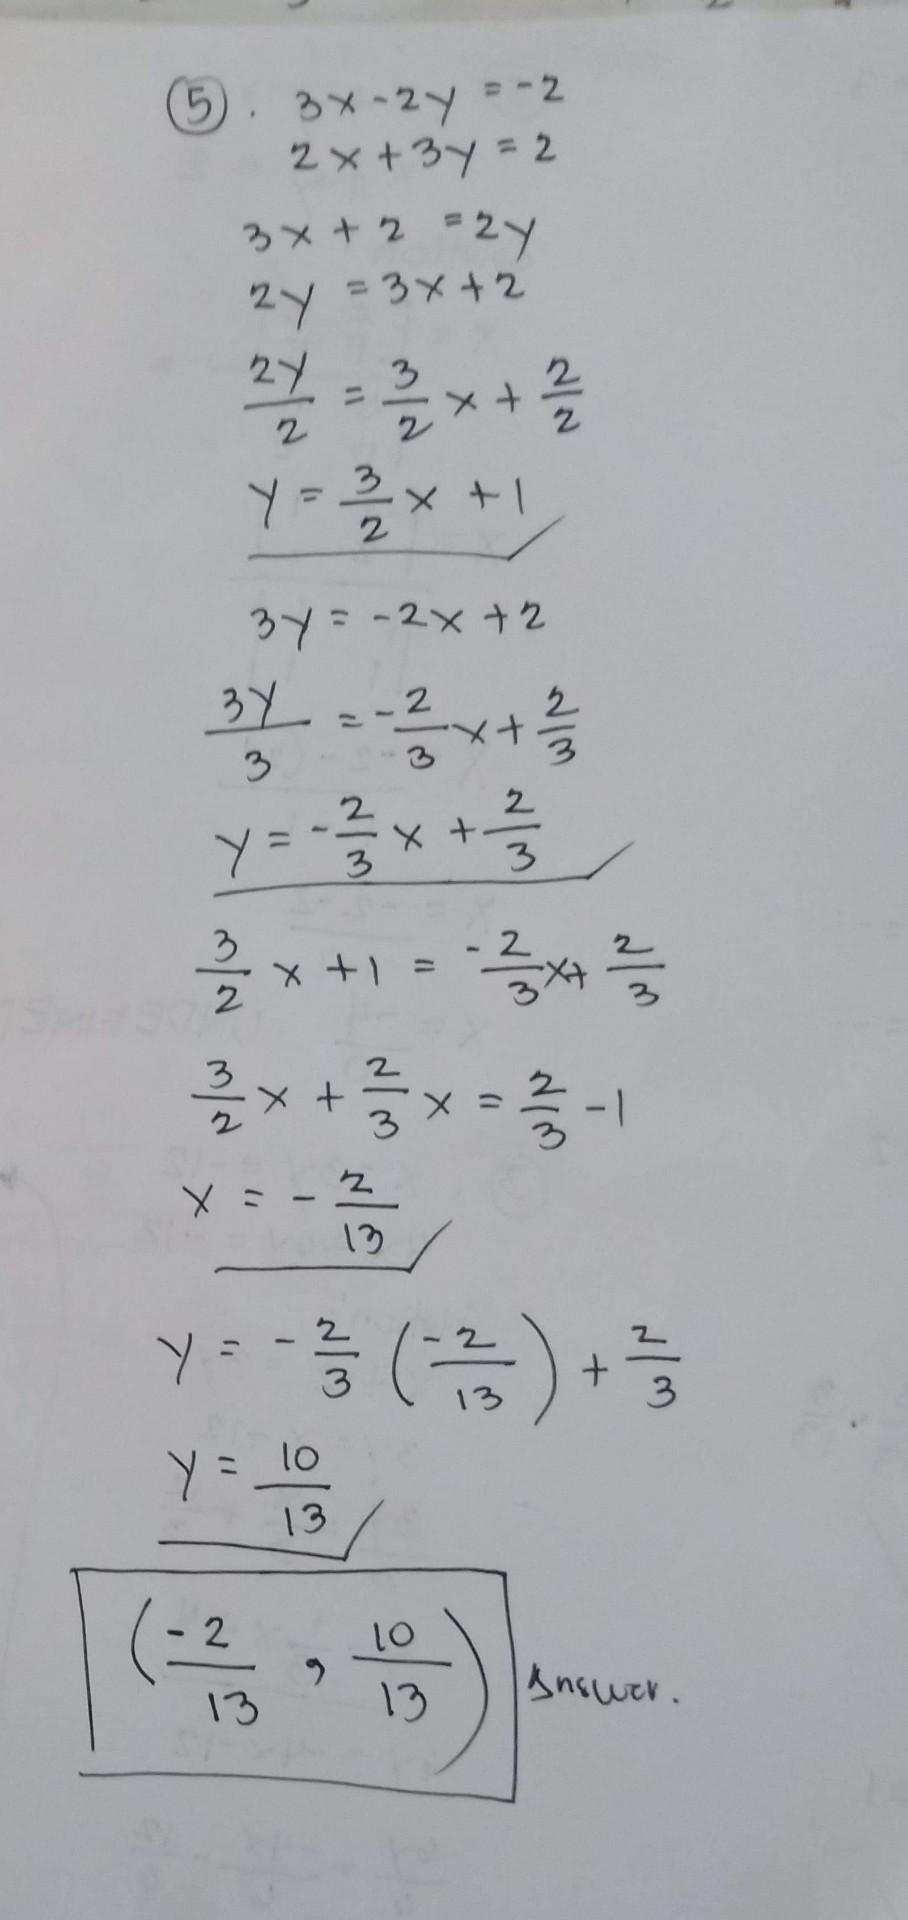 5. 3x-2y = -2
2x+3y = 2
3x+2 = 2y
2y = 3x+2
2y/2 = 3/2 x + 2/2
y = 3/2 x +1
3y = -2x +2
3y/3 = -2/3 x + 2/3
y = -2/3 x + 2/3
3/2 x +1 = -2/3 x + 2/3
3/2 x + 2/3 x = 2/3 -1
x = -2/13
y = -2/3 (-2/13) + 2/3
y = 10/13
(-2/13, 10/13) Answer.